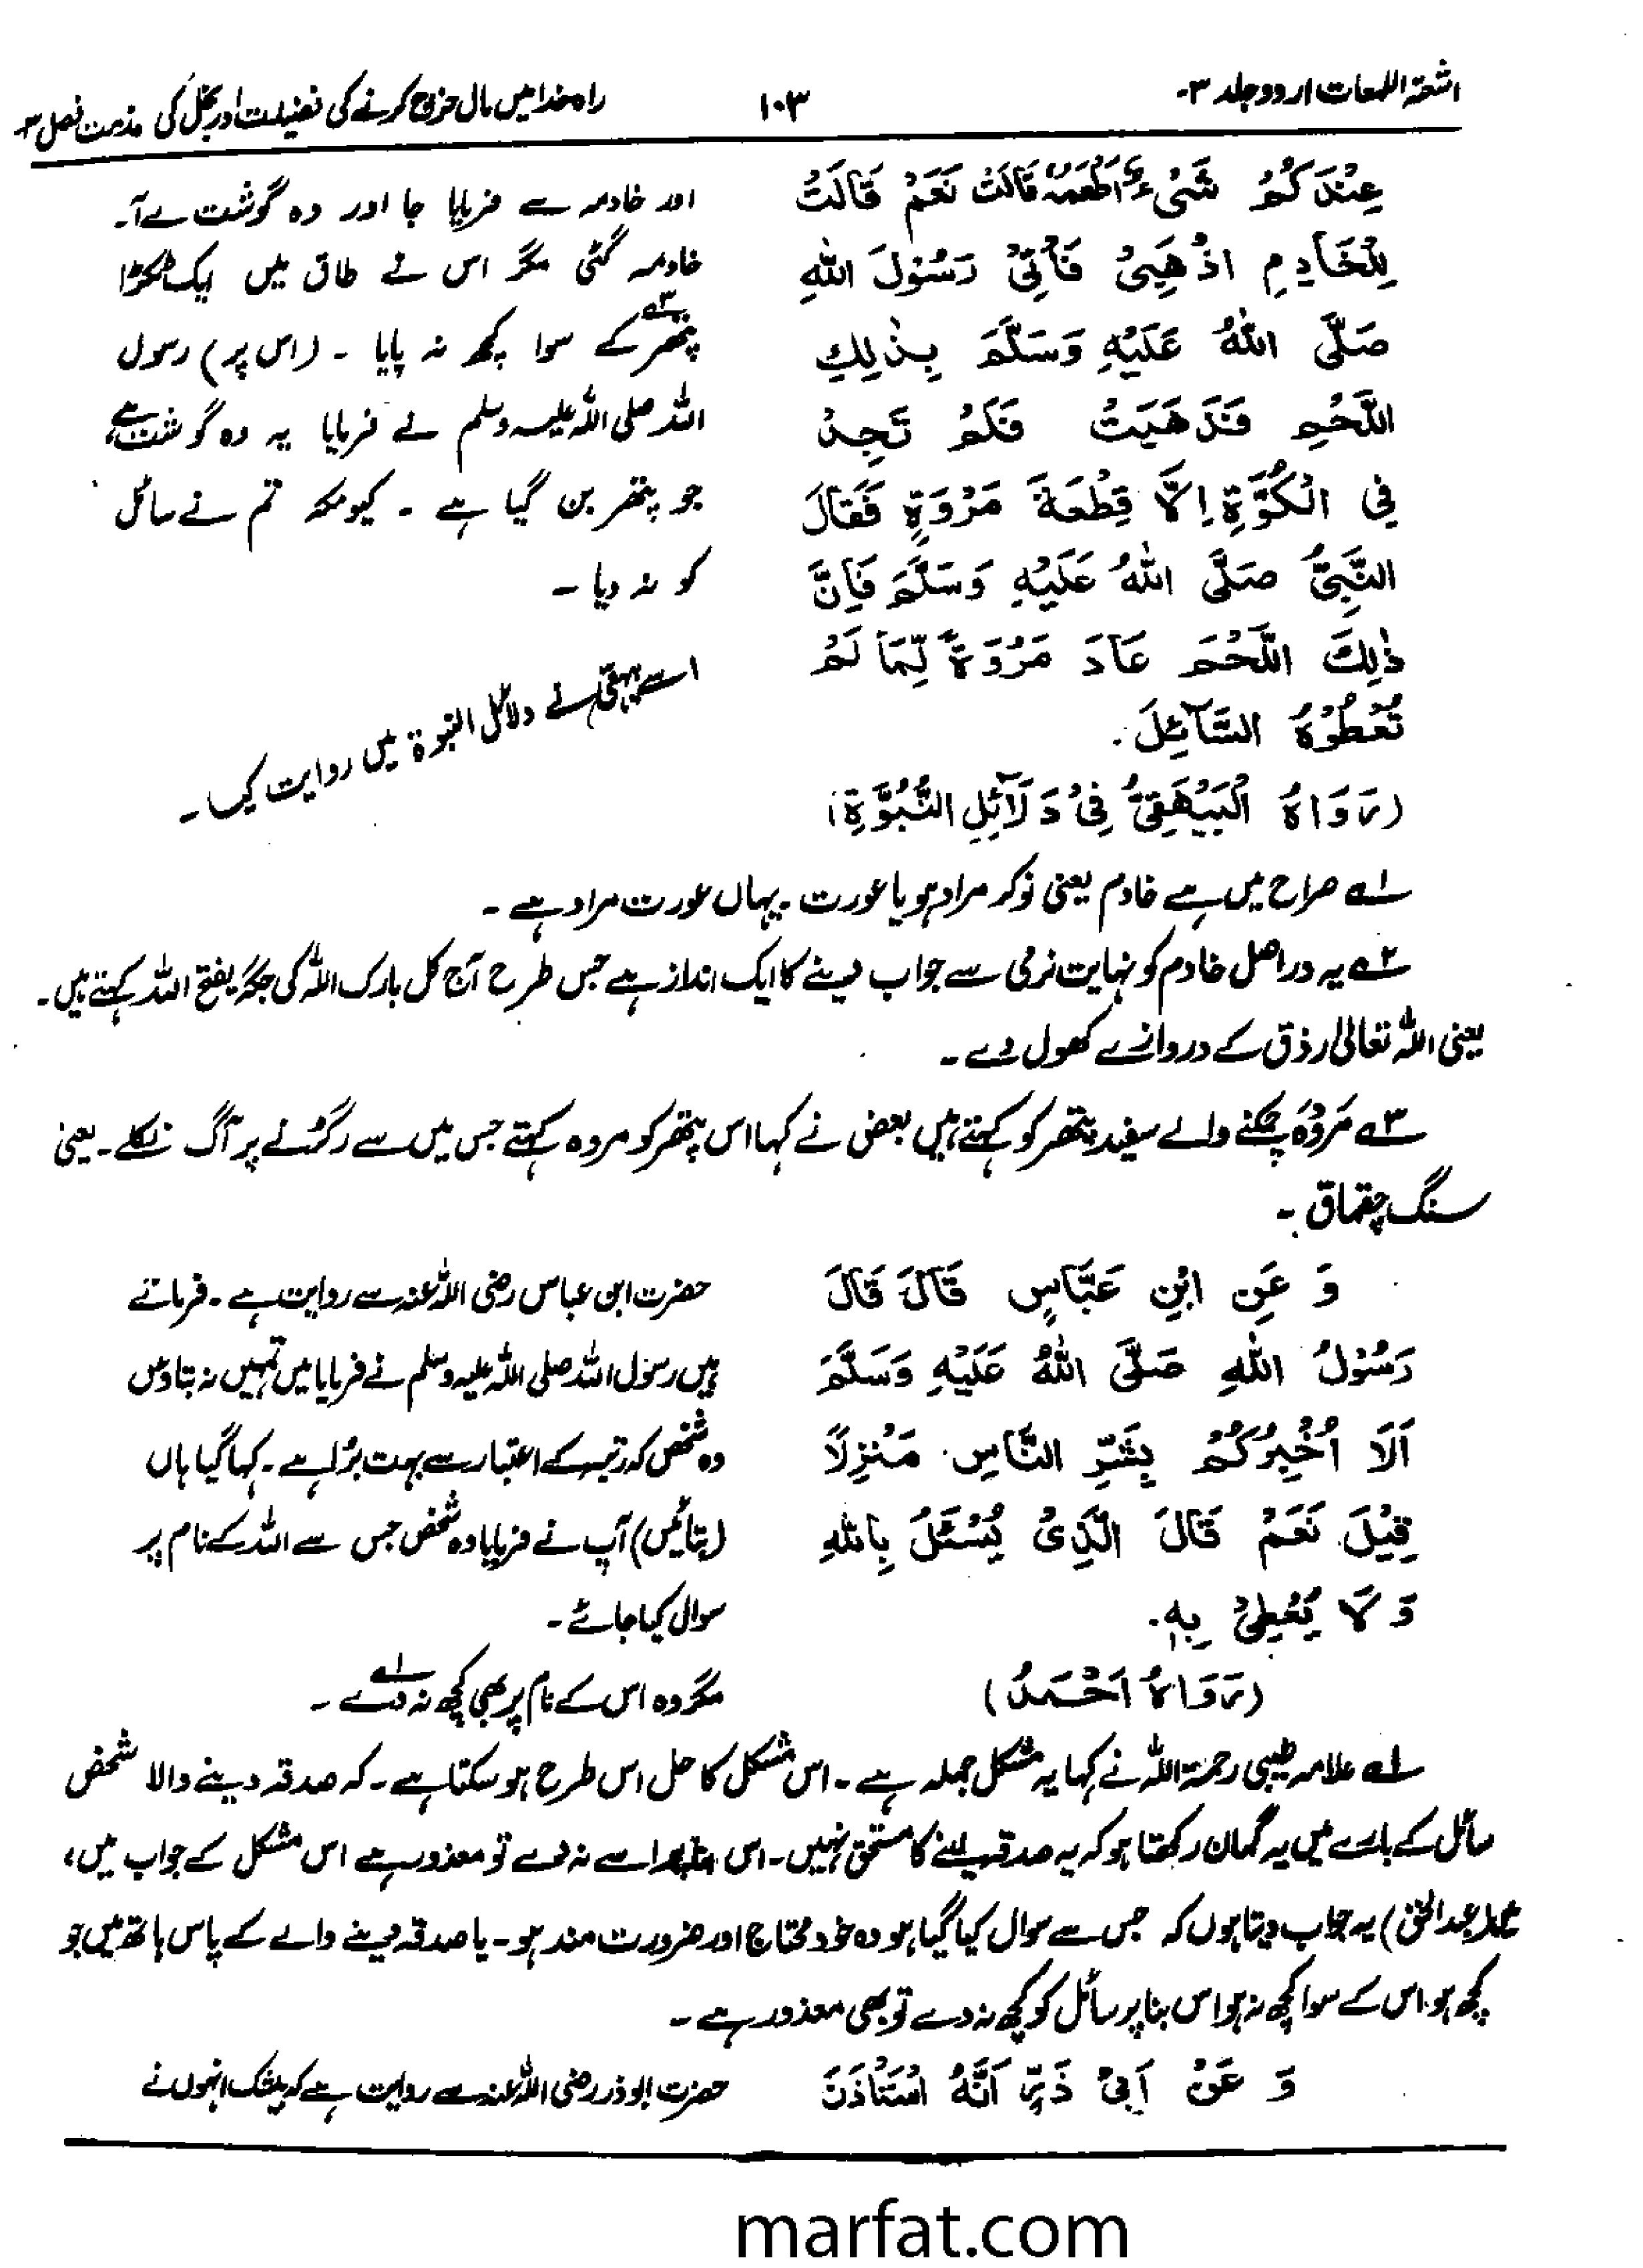 اشعۃ اللمعات اردو جلد ۳-
۱۰۳
راہ خدا میں مال خرچ کرنے کی فضیلت اور بخل کی مذمت فصل ۳
عِنْدَكُمْ شَىْءٌ اُطْعَمُهٗ قَالَتْ نَعَمْ قَالَتْ
لِلْخَادِمِ اذْهَبِىْ فَأْتِىْ رَسُوْلَ اللهِ
صَلَّى اللهُ عَلَيْهِ وَسَلَّمَ بِذٰلِكِ
اللَّحْمِ فَذَهَبَتْ فَلَمْ تَجِدْ
فِى الْكُوَّةِ اِلَّا قِطْعَةَ مَرْوَةٍ فَقَالَ
النَّبِىُّ صَلَّى اللهُ عَلَيْهِ وَسَلَّمَ فَاِنَّ
ذٰلِكَ اللَّحْمَ عَادَ مَرْوَةً لِّمَا لَمْ
تُعْطُوْهُ السَّآئِلَ.
(رَوَاهُ الْبَيْهَقِىُّ فِىْ دَلَآئِلِ النُّبُوَّةِ)
اور خادمہ سے فرمایا جا اور وہ گوشت لے آ۔
خادمہ گئی مگر اس نے طاق میں ایک ٹکڑا
پتھر ۳ے کے سوا کچھ نہ پایا ۔ (اس پر) رسول
اللہ صلی اللہ علیہ وسلم نے فرمایا یہ وہ گوشت ہے،
جو پتھر بن گیا ہے ۔ کیونکہ تم نے سائل
کو نہ دیا ۔
اسے بیہقی نے دلائل النبوۃ میں روایت کیا ۔
۱ے صراح میں ہے خادم یعنی نوکر مراد ہو یا عورت ۔ یہاں عورت مراد ہے ۔
۲ے یہ دراصل خادم کو نہایت نرمی سے جواب دینے کا ایک انداز ہے جس طرح آج کل بارک اللہ کی جگہ یفتح اللہ کہتے ہیں ۔
یعنی اللہ تعالٰی رزق کے دروازے کھول دے ۔
۳ے مَرْوَہ چمکنے والے سفید پتھر کو کہتے ہیں بعض نے کہا اس پتھر کو مروہ کہتے جس میں سے رگڑنے پر آگ نکلے ۔ یعنی
سنگ چقماق ۔
وَ عَنِ ابْنِ عَبَّاسٍ قَالَ قَالَ
رَسُوْلُ اللهِ صَلَّى اللهُ عَلَيْهِ وَسَلَّمَ
اَلَا اُخْبِرُكُمْ بِشَرِّ النَّاسِ مَنْزِلًا
قِيْلَ نَعَمْ قَالَ الَّذِىْ يُسْئَلُ بِاللهِ
وَ لَا يُعْطِىْ بِهٖ.
(رَوَاهُ اَحْمَدُ)
حضرت ابن عباس رضی اللہ عنہ سے روایت ہے ۔ فرماتے
ہیں رسول اللہ صلی اللہ علیہ وسلم نے فرمایا میں تمہیں نہ بتاؤں
وہ شخص کہ رتبہ کے اعتبار سے بہت بڑا ہے ۔ کہا گیا ہاں
(بتائیں) آپ نے فرمایا وہ شخص جس سے اللہ کے نام پر
سوال کیا جائے ۔
مگر وہ اس کے نام پر بھی کچھ نہ دے ۱ے ۔
۱ے علامہ طیبی رحمۃ اللہ نے کہا یہ مشکل جملہ ہے ۔ اس مشکل کا حل اس طرح ہو سکتا ہے ۔ کہ صدقہ دینے والا شخص
سائل کے بارے میں یہ گمان رکھتا ہو کہ یہ صدقہ لینے کا مستحق نہیں ۔ اس بنا پر اسے نہ دے تو معذور ہے اس مشکل کے جواب میں،
(عبدالحق) یہ جواب دیتا ہوں کہ جس سے سوال کیا گیا ہو وہ خود محتاج اور ضرورت مند ہو ۔ یا صدقہ دینے والے کے پاس ہاتھ میں جو
کچھ ہو، اس کے سوا کچھ نہ ہو اس بنا پر سائل کو کچھ نہ دے تو بھی معذور ہے ۔
وَ عَنْ اَبِىْ ذَرٍّ اَنَّهُ اسْتَأْذَنَ
حضرت ابوذر رضی اللہ عنہ سے روایت ہے کہ بیشک انہوں نے
marfat.com